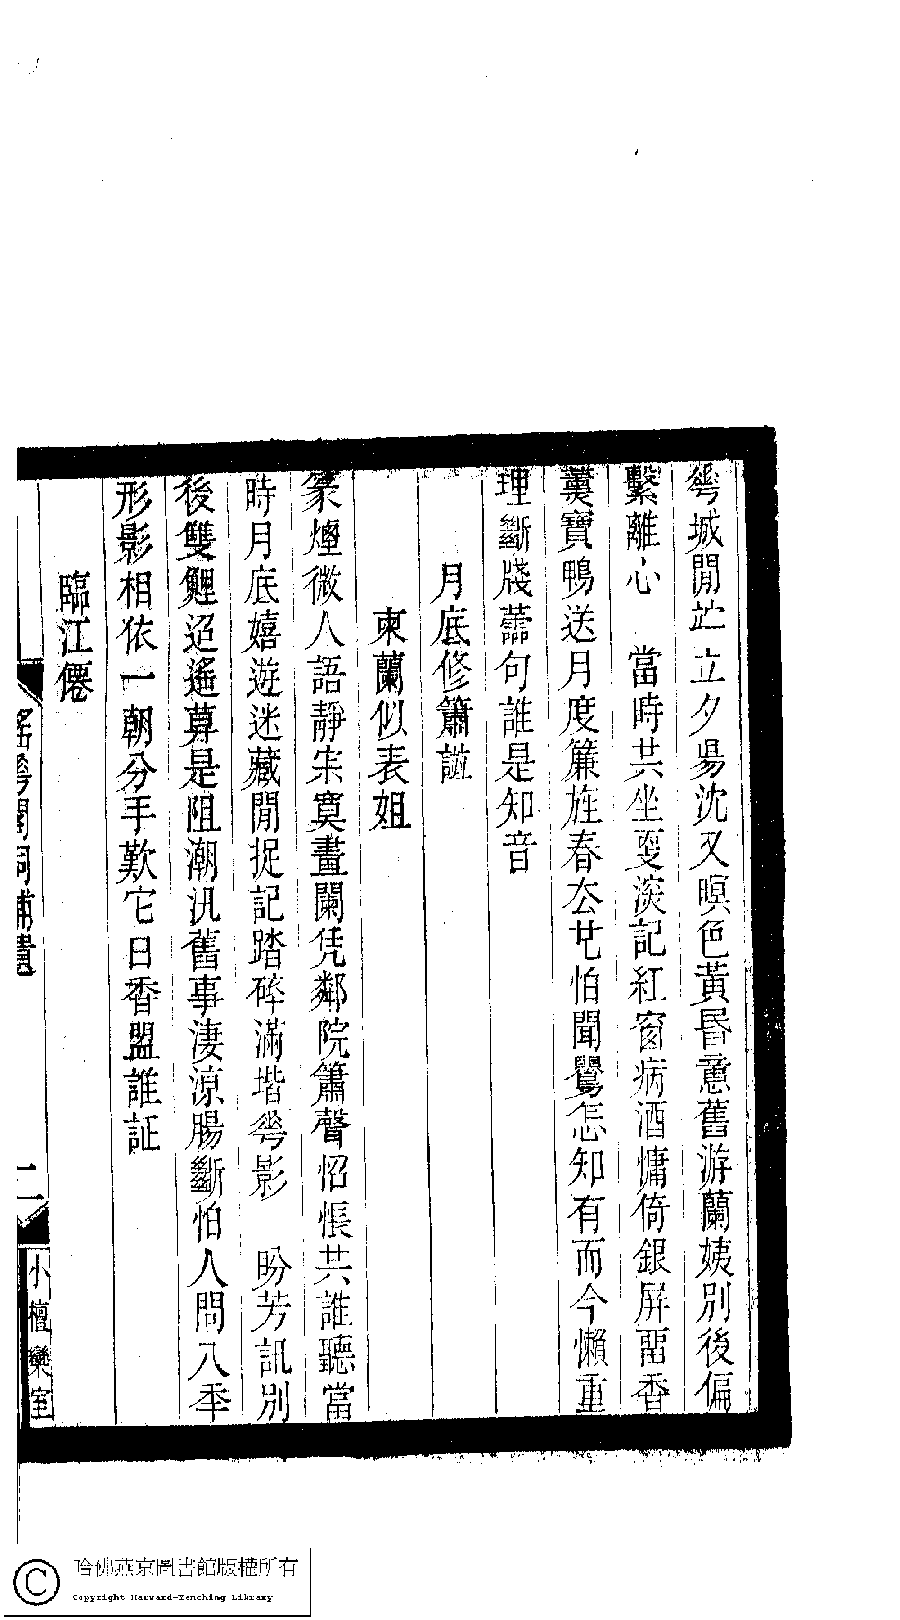 粤城閒竚立夕昜沈又暝色黃昏意舊游蘭姨別後偏
繫離心　當時共坐夜淡記紅窗病酒慵倚銀屏畱香
薰寶鴨送月度簾旌春去也怕聞鶯怎知有而今懶重
理斷牋蕾句誰是知音
月底修簫譜
柬蘭似表姐
篆煙微人語靜宋寞畫闌凭鄰院簫聲怊悵共誰聽當
時月底嬉遊迷藏閒捉記踏碎滿堦粤影　盼芳訊別
後雙鯉迢遙算是阻潮汎舊事淒涼腸斷怕人問八秊
形影相依一朝分手歎它日香盟誰証
臨江僊
瑤粤閣詞補遺
二
小檀欒室
哈佛燕京圖書館版權所有
Copyright Harvard-Yenching Library